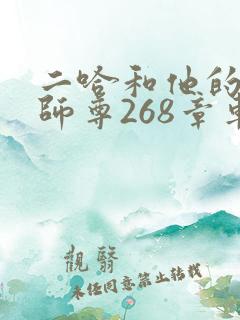 二哈和他的
師尊268章車
觀翳
未经同意禁止转载